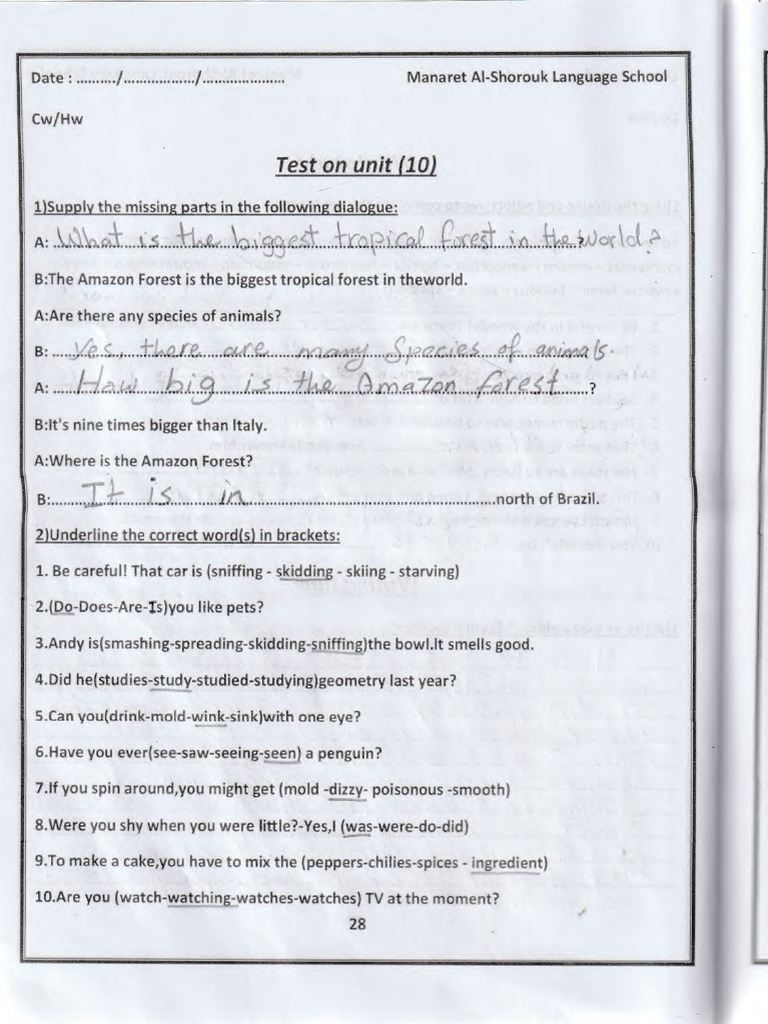 Date : ........../.................../...................... Manaret Al-Shorouk Language School
Cw/Hw
Test on unit (10)
1)Supply the missing parts in the following dialogue:
A: What is the biggest tropical forest in the world?
B:The Amazon Forest is the biggest tropical forest in theworld.
A:Are there any species of animals?
B: Yes, there are many Species of animals.
A: How big is the Amazon forest ?
B:It's nine times bigger than Italy.
A:Where is the Amazon Forest?
B: It is in north of Brazil.
2)Underline the correct word(s) in brackets:
1. Be careful! That car is (sniffing - skidding - skiing - starving)
2.(Do-Does-Are-Is)you like pets?
3.Andy is(smashing-spreading-skidding-sniffing)the bowl.It smells good.
4.Did he(studies-study-studied-studying)geometry last year?
5.Can you(drink-mold-wink-sink)with one eye?
6.Have you ever(see-saw-seeing-seen) a penguin?
7.If you spin around,you might get (mold -dizzy- poisonous -smooth)
8.Were you shy when you were little?-Yes,I (was-were-do-did)
9.To make a cake,you have to mix the (peppers-chilies-spices - ingredient)
10.Are you (watch-watching-watches-watches) TV at the moment?
28